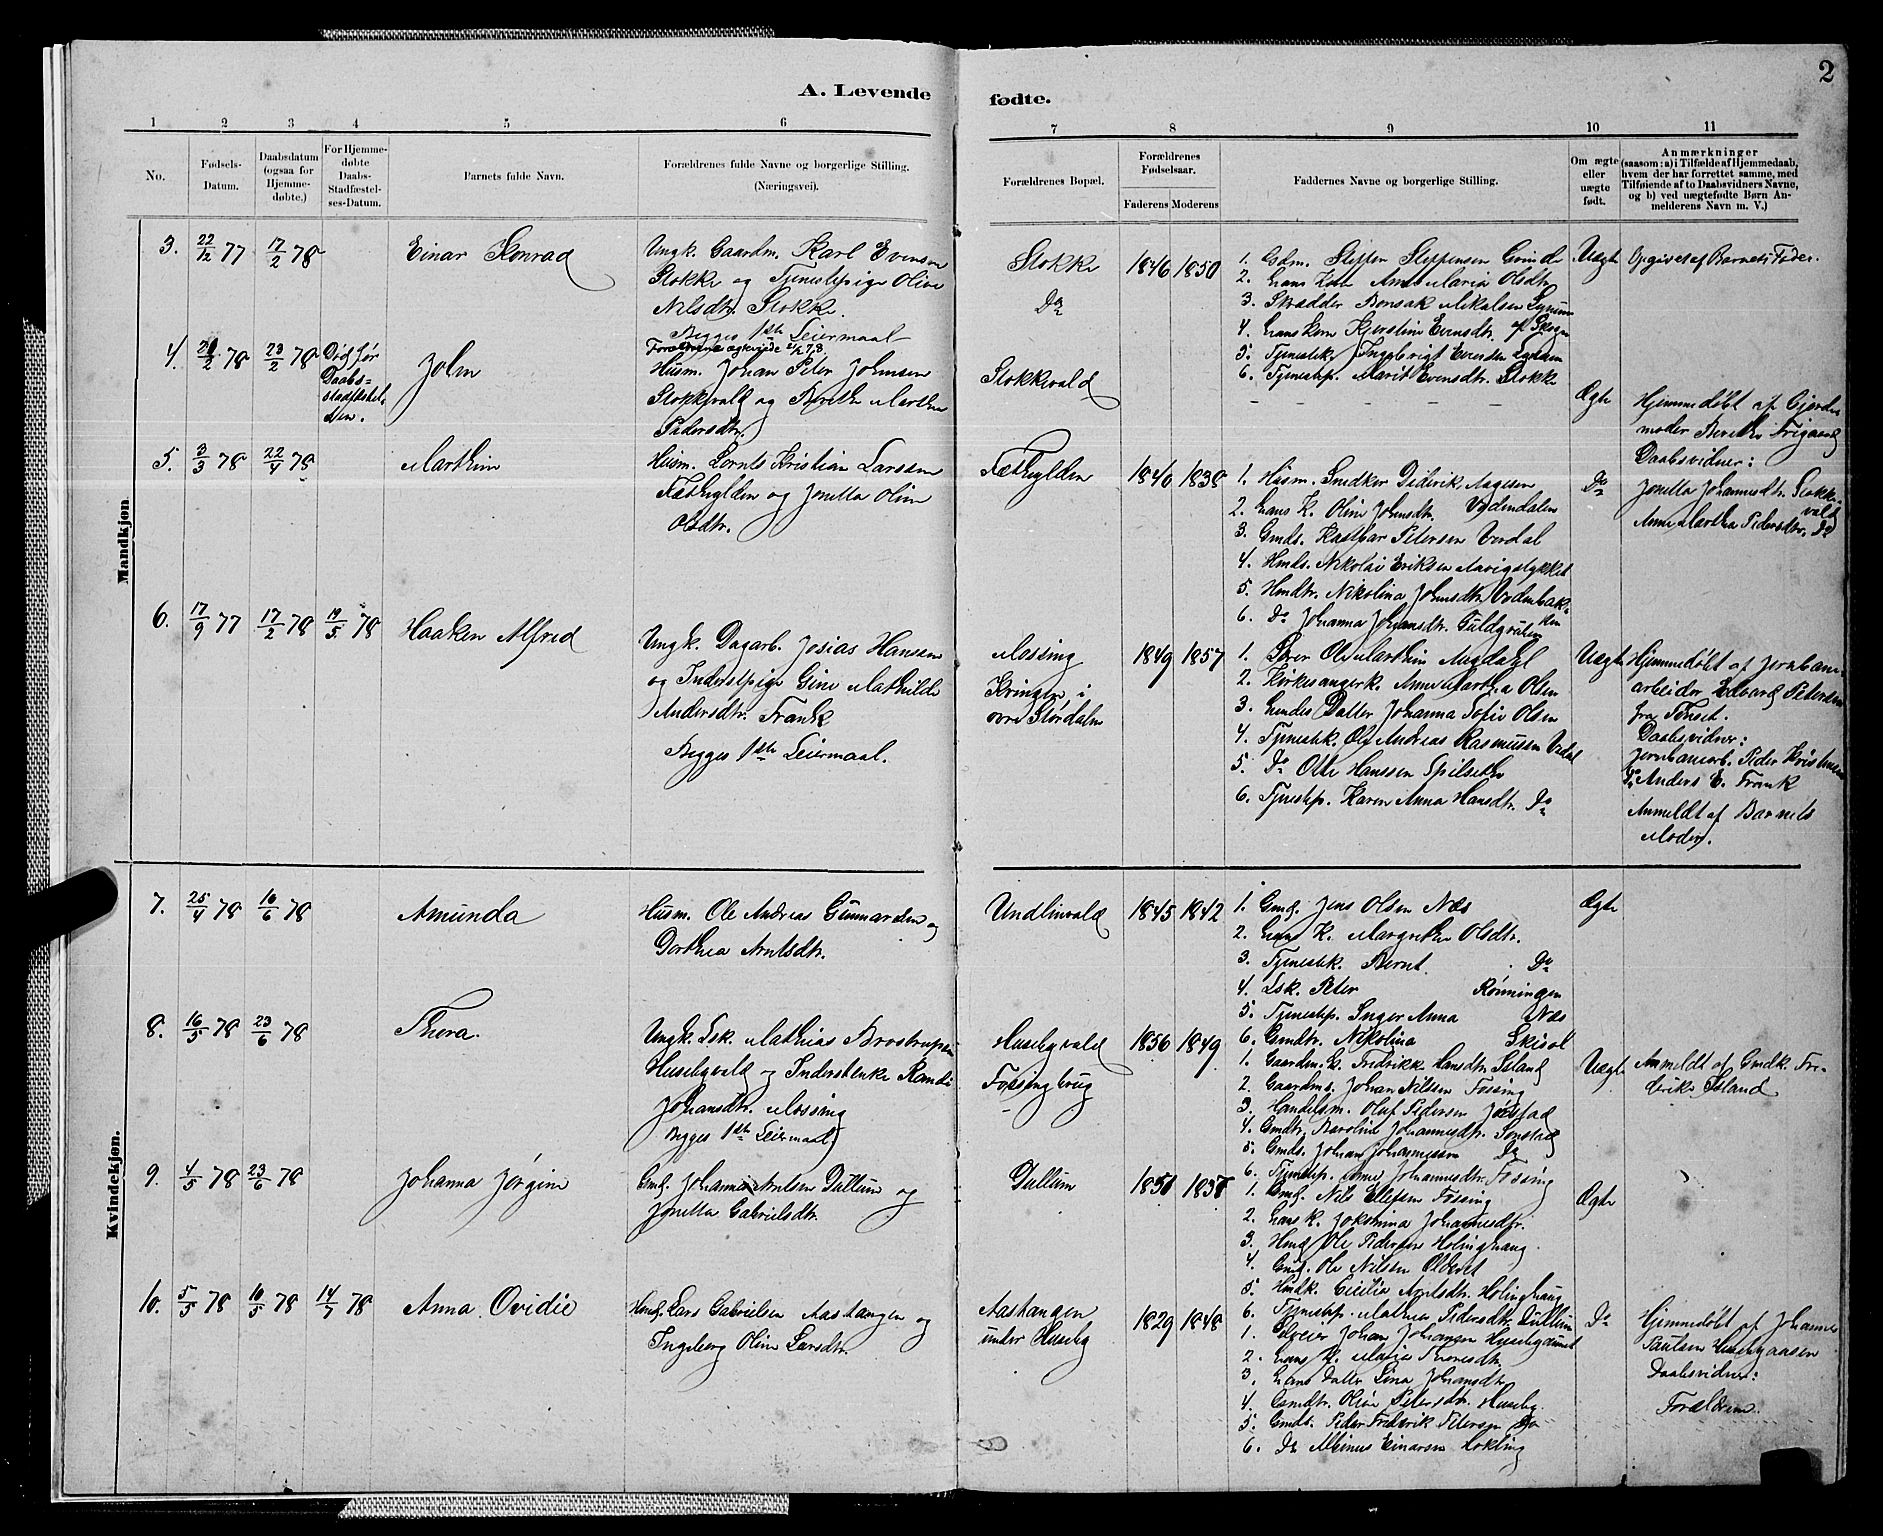 2
A. Levende fødte.
1 2 3 4 5 6 7 8 9 10 11
No.
Fødsels-Datum.
Daabsdatum (ogsaa for Hjemme-døbte.)
For Hjemme-døbte Daabs-Stadfæstel-ses-Datum.
Barnets fulde Navn.
Forældrenes fulde Navne og borgerlige Stilling.
(Næringsvei).
Forældrenes Bopæl.
Forældrenes Fødselsaar.
Faderens Moderens
Faddernes Navne og borgerlige Stilling.
Om ægte eller uægte født.
Anmærkninger
(saasom: a) i Tilfælde af Hjemmedaab,
hvem der har forrettet samme, med
Tilføiende af to Daabsvidners Navne,
og b) ved uægtefødte Børn An-
melderens Navn m. V.)
Mandkjøn.
3. 22/12 77 17/2 78
Einar Konrad
Ungk. Gaardm. Karl Evensen
Stokke og Tjenestepige Oline
Nilsdtr. Stokke.
Begges 1ste Leiermaal
Stokke
Do
1846 1850
1. Gdm. Steffen Steffensen
2. Hans Kone Anne Maria Olsdtr.
3. Skrædder Mikalsen
4. Hans Kone Kjerstine Evensdtr.
5. Tjenestek. Ingebrigt Evensen
6. Tjenestep. Marit Evensdtr. Stokke
Uægte
Opgivet af Barnets Fader.
4. 2/2 78 23/2 78
Død før
Daabs-
stadfæstel-
sen.
John
Husm. Johan Peter Johnsen
Stokkevald og Berethe Martha
Pedersdtr.
Stokkevald
Ægte
Hjemmedøbt af Gjorde-
moder Berethe
Daabsvidner:
Jonetta Johannesdtr. Stokke-
vald
Anne Martha Pedersdtr. Do
5. 3/3 78 22/4 78
Marthin
Husm. Lornts Kristian Larssen
Fæthylden og Jonetta Oline
Olsdtr.
Fæthylden
1846 1838
1. Husm. Snedker Diderik Aagesen
2. Hans K. Oline Johnsdtr. Vodendalen
3. Gmds. Kastbar Petersen Verdal
4. Hmds. Nikolai Eriksen
5. Hmdtr. Nikolina Johnsdtr. Vodenbak-
ken
6. Do Johanna Johansdtr. Guldgrulen
Do
6. 17/9 77 17/2 78 19/5 78
Haaken Alfred
Ungk. Dagarb. Josias Hanssen
og Inderstpige Gine Mathilde
Andersdtr. Frank
Begges 1ste Leiermaal.
Mossing
Kringen i
øvre Stördalen
1849 1857
1. Ole Marthin
2. Kirkesangerk. Anne Martha Olsen
3. Hendes Datter Johanna Sofie Olsen
4. Tjenestek. Ole Andreas Rasmussen
5. Do Ole Hanssen Spilseth
6. Tjenestep. Karen Anna Hansdtr. Do
Uægte
Hjemmedøbt af Jernbane-
arbeider Edvard Petersen
fra Tønset.
Daabsvidner:
Jernbanearb. Peder Kristensen
Do Anders E. Frank
Anmeldt af Barnets
Moder.
Kvindekjøn.
7. 25/4 78 10/6 78
Amunda
Husm. Ole Andreas Gunnarsen og
Dorthea Arntsdtr.
Undlinvald
1845 1842
1. Gmd. Jens Olsen Næs
2. Hans K. Margrethe Olsdtr.
3. Tjenestek. Bernt Do
4. Lsk. Peter Rönningen
5. Tjenestep. Inger Anna Næs
6. Gmdtr. Nikolina
Ægte
8. 16/5 78 23/6 78
Thora.
Ungk. Lsk. Mathias Brostrupsen
Husebyvald og Inderstenke Randi
Johansdtr. Mossing
Begges 1ste Leiermaal
Husebyvald
Fossingbrug
1856 1849
1. Gaardm. E. Fredrikke Hansdtr. Island
2. Gaardms. Johan Nilssen Fossing
3. Handelsm. Oluf Pedersen
4. Gmdtr. Beroline Johannesdtr.
5. Gmds. Johan Johannessen Do
6. Tjenestep. Anne Johannesdtr. Fossing
Uægte
Anmeldt af Gmdk. Fre-
derikke Island
9. 4/5 78 23/6 78
Johanna Jørgine
Gmd. Johannes Arntsen Dullum og
Jonetta Gabrielsdtr.
Dullum
1. Gmd. Nils Ellefsen Fossing
2. Hans K. Jokomina Johannesdtr.
3. Hmd. Ole Pedersen Holinghaug
4. Gmd. Ole Nilssen
5. Hmdk. Cecilia Arntsdtr. Holinghaug
6. Tjenestep. Mathea Pedersdtr. Dullum
Ægte
10. 5/5 78 10/5 78 14/7 78
Anna Ovidie
Hmd. Lars Gabrielsen Aashaugen og
Ingeborg Oline Larsdtr.
Aashaugen
under Huseby
1829 1848
1. Johan Johansen
2. Hans K. Maria Thoresdtr.
3. Hans Datter Lina Johansdtr.
4. Gmdtr. Oline Petersdtr. Huseby.
5. Gmds. Peder Frederik Petersen Do
6. Do Albinus Einarsen Hokling
Do
Hjemmedøbt af Johannes
Paulsen Husbyaasen
Daabsvidner:
Forældrene.